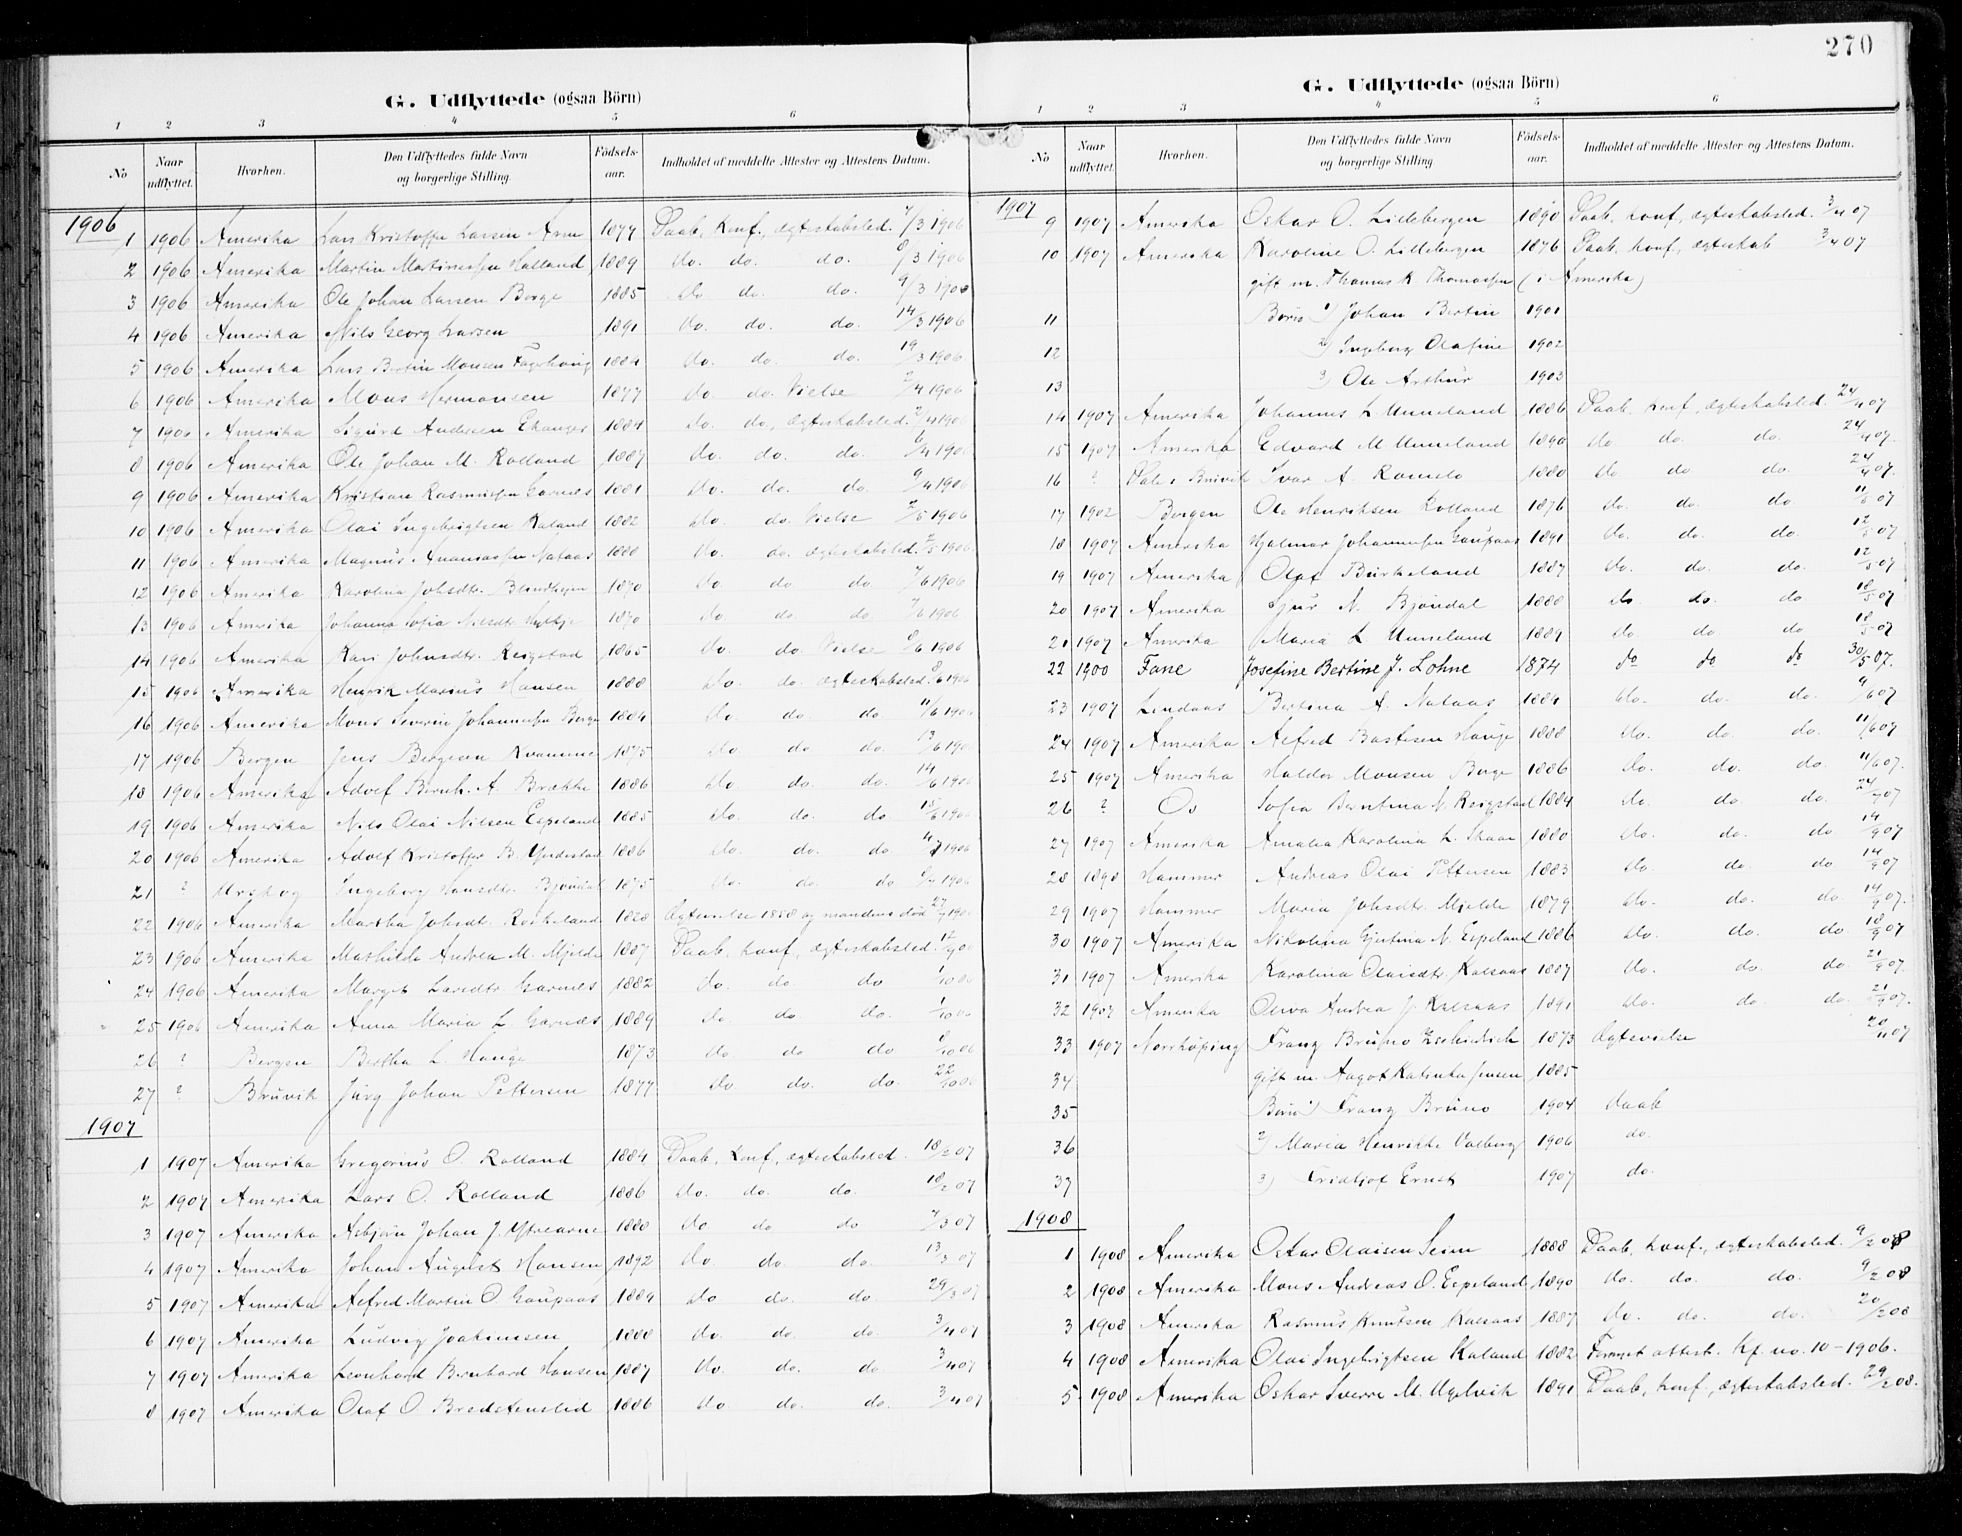 G. Udflyttede (ogsaa Börn)
1 2 3 4 5 6
No Naar udflyttet. Hvorhen. Den Udflyttedes fulde Navn og borgerlige Stilling. Födsels-aar. Indholdet af meddelte Attester og Attestens Datum.
1906
1 1906 Amerika Lars Kristoffer Larsen Arne 1877 Daab, Konf., ægteskabsled. 7/3 1906
2 1906 Amerika Martin Martinussen Halland 1889 do. do. do. 8/3 1906
3 1906 Amerika Ole Johan Larsen Borge 1885 do do. do. 9/3 1906
4 1906 Amerika Nils Georg Larsen 1891 do. do. do. 14/3 1906
5 1906 Amerika Lars Bertin Monsen 1884 do. do. do. 19/3 1906
6 1906 Amerika Mons Hermansen 1877 do do. Vielse 2/4 1906
7 1906 Amerika Sigurd Andersen Ekanger 1884 do. do., ægteskabsled. 2/4 1906
8 1906 Amerika Ole Johan M. Rolland 1887 do. do. do. 6/4 1906
9 1906 Amerika Kristian Rasmussen Garnæs 1881 do. do. do. 9/4 1906
10 1906 Amerika Olai Ingebrigtsen Kaland 1882 do. do. Vielse 2/5 1906
11 1906 Amerika Magnus Ananiassen Nataas 1888 do. do. ægteskabsled. 2/5 1906
12 1906 Amerika Karolina Johsdtr. Blindheim 1870 do do. do. 7/6 1906
13 1906 Amerika Johanna Sofia Nilsdtr. 1870 do do. do 7/6 1906
14 1906 Amerika Kari Johnsdtr. Reigstad 1865 do. do. Vielse 8/6 1906
15 1906 Amerika Henrik Marius Hansen 1888 do. do. ægteskabsled. 8/6 1906
16 1906 Amerika Mons Severin Johannessen Borge 1884 do do. do 11/6 1906
17 1906 Bergen Jens Bergean Kvamme 1875 do do do. 13/6 1906
18 1906 Amerika Adolf Bernh. A. Brække 1886 do do. do. 14/6 1906
19 1906 Amerika Nils Olai Nilsen Espeland 1885 do. do. do 15/6 1906
20 1906 Amerika Adolf Kristoffer B. Yndestad 1886 do. do. do 4/7 1906
21 ? Urskog Ingeborg Hansdtr. Bjöndal 1875 do. do. do
22 1906 Amerika Martha Johsdtr. Rokkeland 1828 Ægtevielse 1858 og mandens död
23 1906 Amerika Mathilda Andrea M. Mjelde 1887 Daab, konf., ægteskabsled.
24 1906 Amerika Marget Larsdtr. Garnæs 1882 do. do. do 1/10 06
25 1906 Amerika Anna Maria L. Garnæs 1889 do. do. do. 1/10 06
26 ? Bergen Bertha L. Hauge 1873 do do do 8/10 06
27 ? Bruvik Jürg Johan Pettersen 1877 do do. do. 22/10 06
1907
1 1907 Amerika Gregorius O. Rolland 1884 Daab, konf., ægteskabsled. 18/2 07
2 1907 Amerika Lars O. Rolland 1886 do. do. do. 18/2 07
3 1907 Amerika Asbjörn Johan J. Ytrearne 1888 do do do 7/3 07
4 1907 Amerika Johan August Hansen 1892 do. do. do. 13/3 07
5 1907 Amerika Alfred Martin O. Gaupaas 1884 do do. do. 29/3 07
6 1907 Amerika Ludvig Joakimsen 1888 do. do. do. 3/4 07
7 1907 Amerika Leonhard Bernhard Hansen 1887 do. do. do. 3/4 07
8 1907 Amerika Olaf O. Bredstenslid 1886 do. do. do. 3/4 07
270
G. Udflyttede (ogsaa Börn)
1 2 3 4 5 6
No Naar udflyttet. Hvorhen. Den Udflyttedes fulde Navn og borgerlige Stilling. Födsels-aar. Indholdet af meddelte Attester og Attestens Datum.
1907
9 1907 Amerika Oskar O. Lillebergen 1890 Daab, konf., ægteskabsled. 3/4 07
10 1907 Amerika Karoline O. Lillebergen 1876 Daab, konf., ægteskab 3/4 07
gift m. Thomas K. Thomassen (i Amerika)
11 Börn 1) Johan Bertin 1901
12 2) Ingeborg Olafine 1902
13 3) Ole Arthur 1903
14 1907 Amerika Johannes L. Unneland 1886 Daab, konf., ægteskabsled. 24/4 07
15 1907 Amerika Edvard M. Unneland 1890 do do. do. 24/4 07.
16 ? Ivar A. Romslo 1880 do do. do. 24/4 07.
17 1902 Bergen Ole Henriksen Rolland 1876 do. do. do 11/5 07
18 1907 Amerika Hjalmar Johannessen Gaupaas 1891 do. do. do. 12/5 07
19 1907 Amerika Olaf Birkeland 1887 do. do. do. 12/5 07
20 1907 Amerika Sjur N. Bjöndal 1888 do. do. do 18/5 07
21 1907 Amerika Maria L. Unneland 1889 do do do 18/5 07
22 1900 Fane Josefine Bertine J. Lohne 1874 do do do 30/5 07.
23 1907 Lindaas Bertina A. Nataas 1884 do. do. do. 9/6 07
24 1907 Amerika Alfred Bastesen Hauge 1888 do. do. do. 11/6 07
25 1907 Amerika Haldor Monsen Borge 1886 do. do. do. 11/6 07.
26 ? Os Sofia Berntina N. Reigstad 1884 do. do. do.
27 1907 Amerika Amalia Karolina L. Skaar 1880 do. do. do.
28 1898 Hammer Andreas Olai Pettersen 1883 do. do. do 14/9 07
29 1907 Hammer Maria Johsdtr. Mjelde 1879 do. do. do. 14/9 07.
30 1907 Amerika Nikolina Gjertina N. Espeland 1886 do. do. do. 18/9 07
31 1907 Amerika Karolina Olaisdtr. Kalsaas 1887 do. do. do. 21/9 07.
32 1907 Amerika Oliva Andrea J. Kalsaas 1891 do. do. do. 21/9 07.
33 1907 Norrköping Franz Bruno Zschietsch 1873 Ægtevielse 20/11 07
34 gift m. Aagot Katinka Jensen 1885
35 Börn 1) Franz Bruno 1904 daab
36 2) Maria Henrikke Valborg 1906 do.
37 3) Fridtjof Ernst 1907 do.
1908
1 1908 Amerika Oskar Olaisen Seim 1888 Daab, konf., ægteskabsled. 9/2 08
2 1908 Amerika Mons Andreas O. Espeland 1890 do. do. do. 9/2 08
3 1908 Amerika Rasmus Knutsen Kalsaas 1887 do. do. do. 20/2 08
4 1908 Amerika Olai Ingebrigtsen Kaland 1882 Fornyet attest. kf. no. 10 - 1906.
5 1908 Amerika Oskar Sverre M. Ugelvik 1891 Daab, konf., ægteskabsled. 29/2 08.